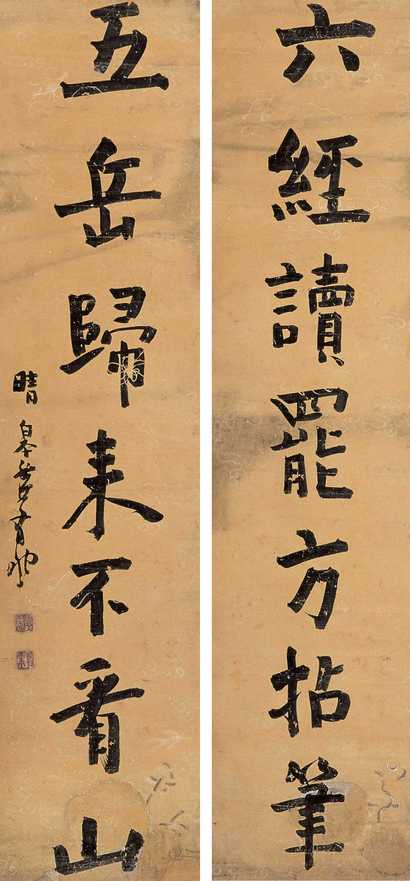 六經讀罷方拈筆
五岳歸來不看山
晴皋